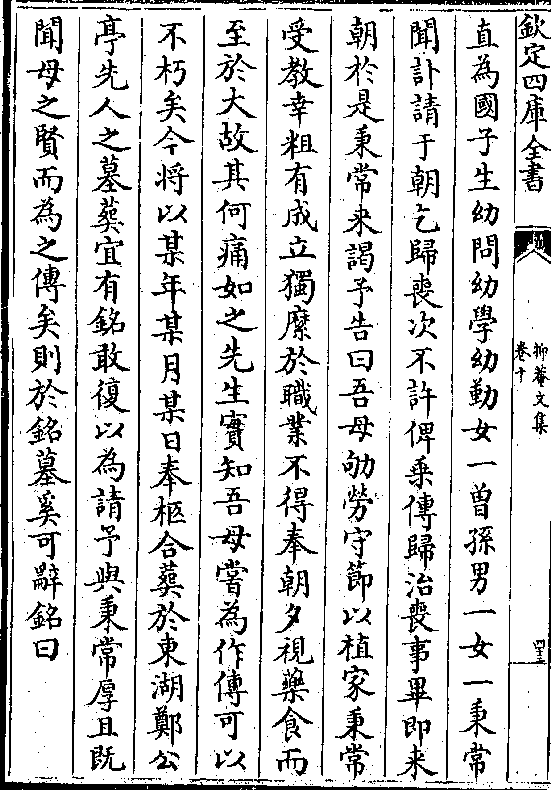 欽定四庫全書
抑菴文集
卷十
四十三
直為國子生幼問幼學幼勤女一曽孫男一女一秉常
聞訃請于朝乞歸喪次不許俾乗傳歸治喪事畢即来
朝於是秉常来謁予告曰吾母劬勞守節以植家秉常
受教幸粗有成立獨縻於職業不得奉朝夕視藥食而
至於大故其何痛如之先生實知吾母嘗為作傳可以
不朽矣今将以某年某月某日奉柩合葬於東湖鄭公
亭先人之墓葬宜有銘敢復以為請予與秉常厚且既
聞母之賢而為之傳矣則於銘墓奚可辭銘曰